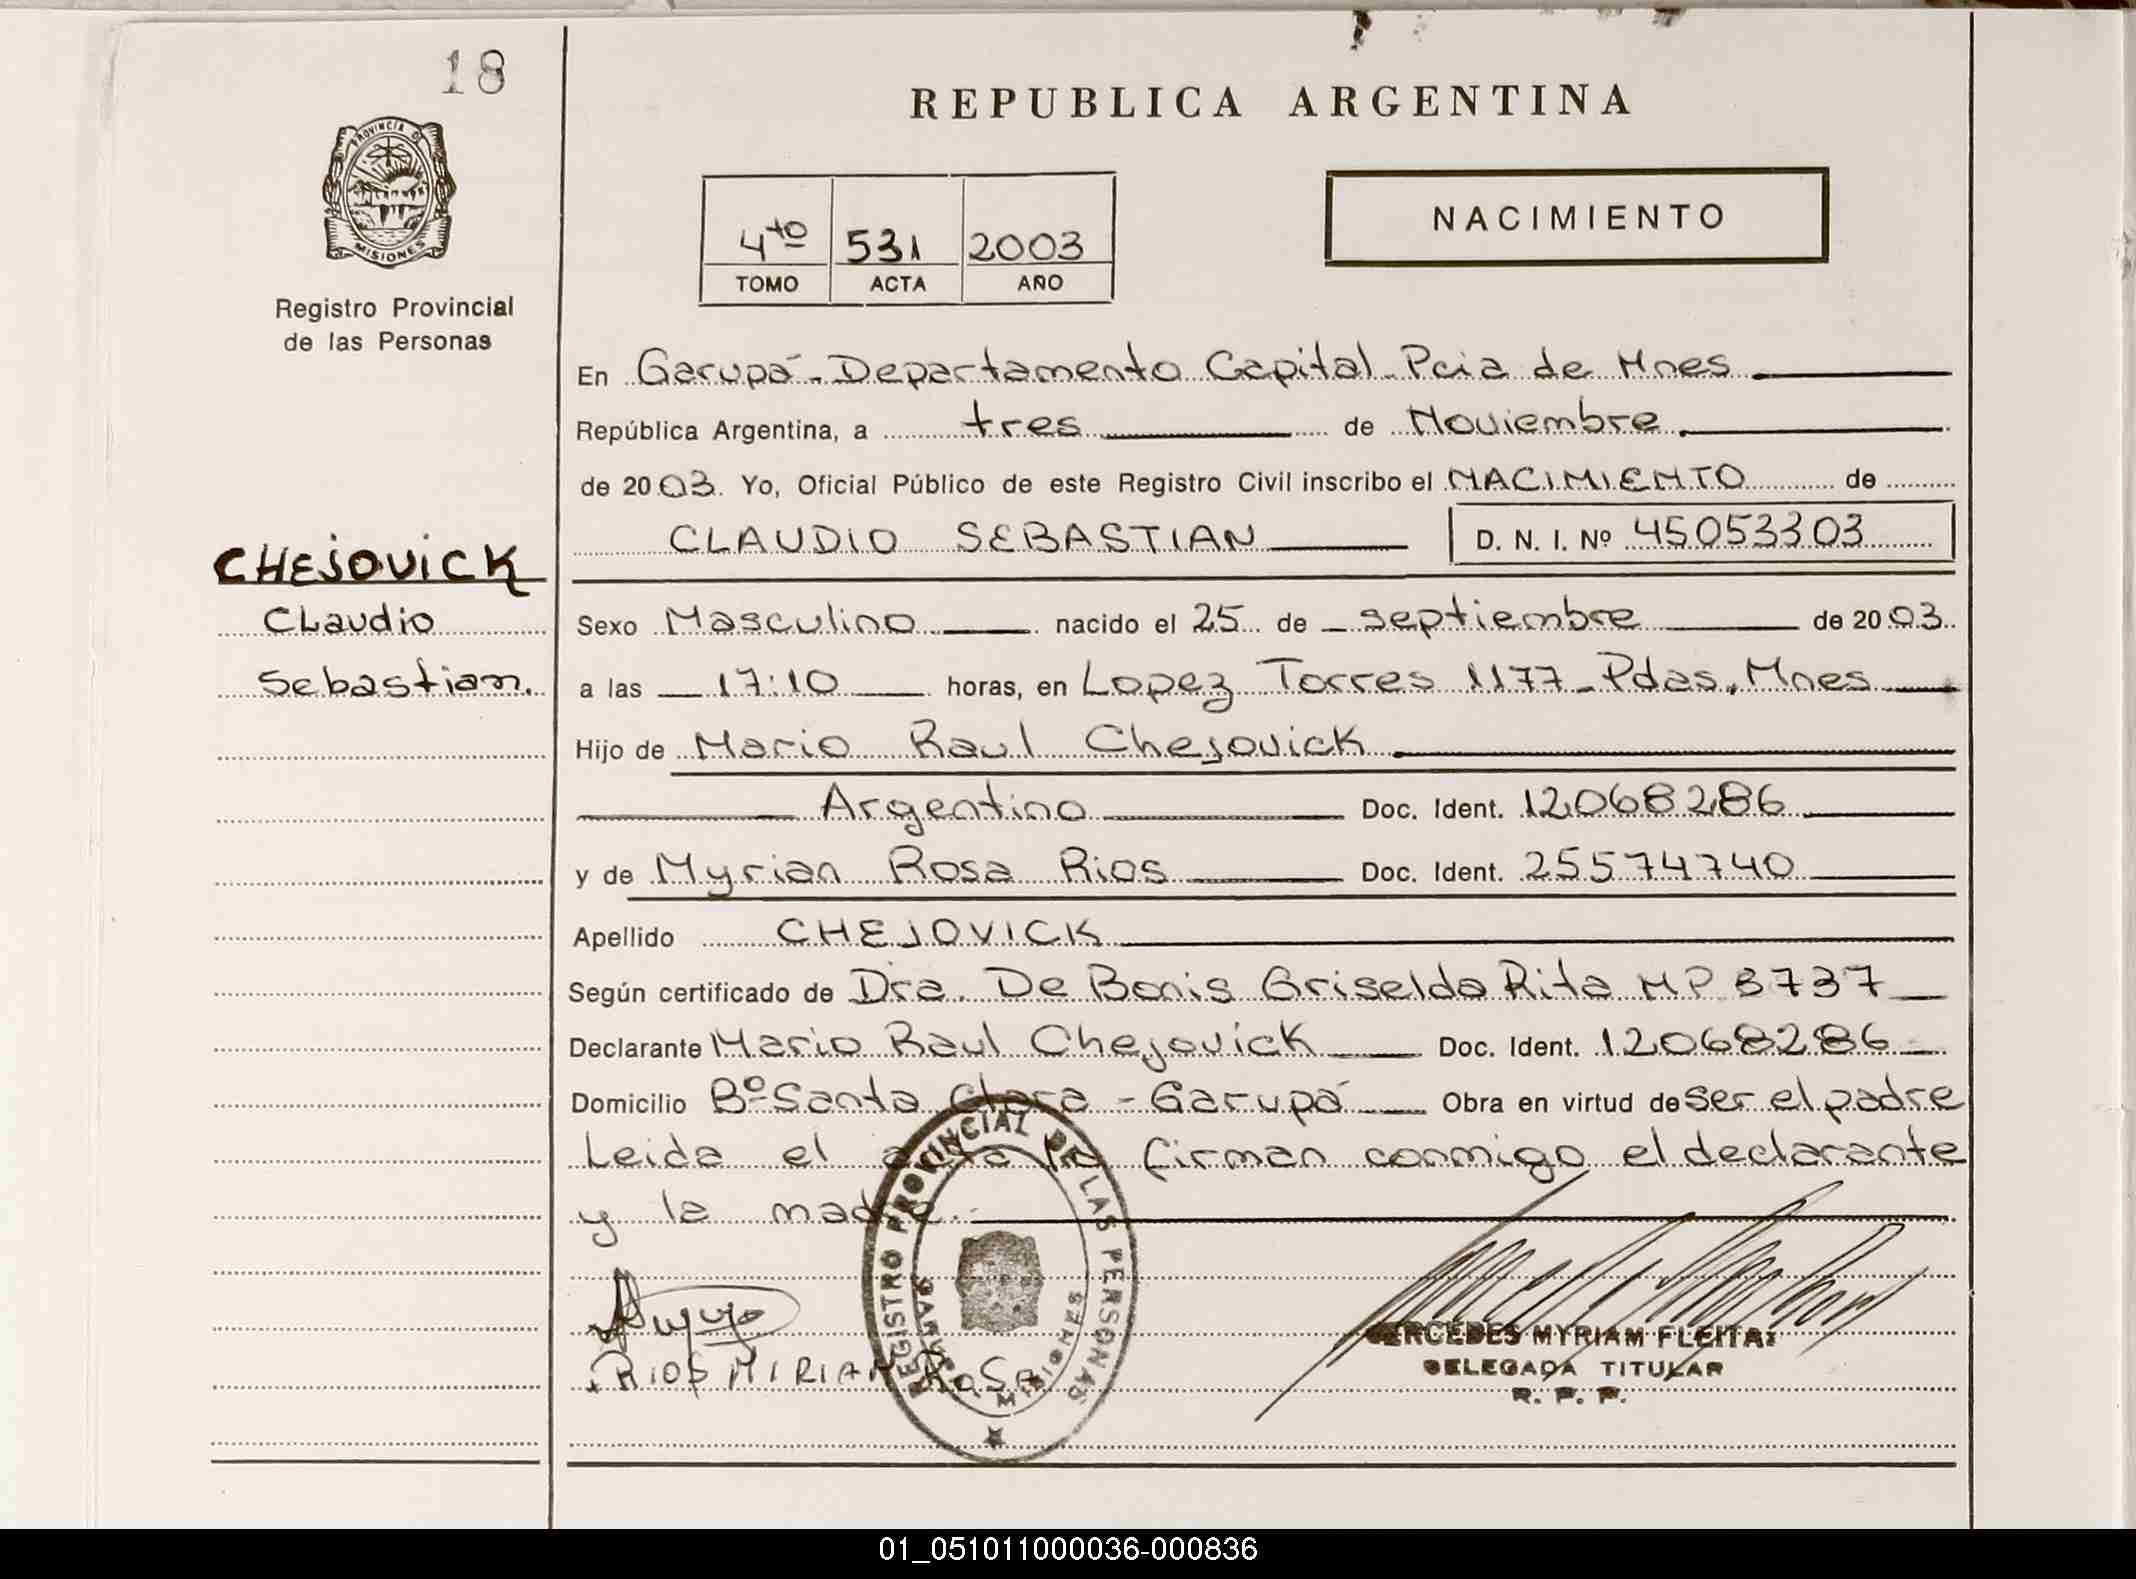 18
PROVINCIA DE
MISIONES
Registro Provincial
de las Personas
CHEJOVICK
CLaudio
Sebastian.
REPUBLICA ARGENTINA
4to 531 2003
TOMO ACTA AÑO
NACIMIENTO
En Garupá - Departamento Capital - Pcia de Mnes
República Argentina, a tres de Noviembre
de 2003. Yo, Oficial Público de este Registro Civil inscribo el NACIMIENTO de
CLAUDIO SEBASTIAN D. N. I. Nº 45053303
Sexo Masculino nacido el 25 de septiembre de 2003
a las 17:10 horas, en Lopez Torres 1177 - Pdas. Mnes
Hijo de Mario Raul Chejovick
Argentino Doc. Ident. 12068286
y de Myrian Rosa Rios Doc. Ident. 25574740
Apellido CHEJOVICK
Según certificado de Dra. De Bonis Griselda Rita MP 3737
Declarante Mario Raul Chejovick Doc. Ident. 12068286
Domicilio Bº Santa Clara - Garupá Obra en virtud de ser el padre
Leida el acta la firman conmigo el declarante
y la madre.
REGISTRO PROVINCIAL DE LAS PERSONAS
GARUPA MISIONES
RIOS MIRIAM ROSA
MERCEDES MYRIAM FLEITAS
DELEGADA TITULAR
R. P. P.
01_051011000036-000836